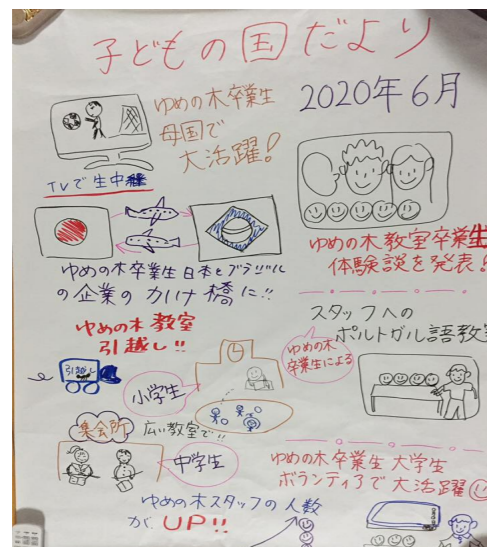 子どもの国だより
2020年6月
ゆめの木卒業生
母国で
大活躍!
TVで生中継
ゆめの木卒業生日本とブラジル
の企業のかけ橋に!!
ゆめの木教室卒業生
体験談を発表!
スタッフへの
ポルトガル語教室
ゆめの木
卒業生による
ゆめの木教室
引越し!!
引越し
小学生
集会所
広い教室で!!
中学生
ゆめの木卒業生大学生
ボランティアで大活躍
ゆめの木スタッフの人数
がUP!!